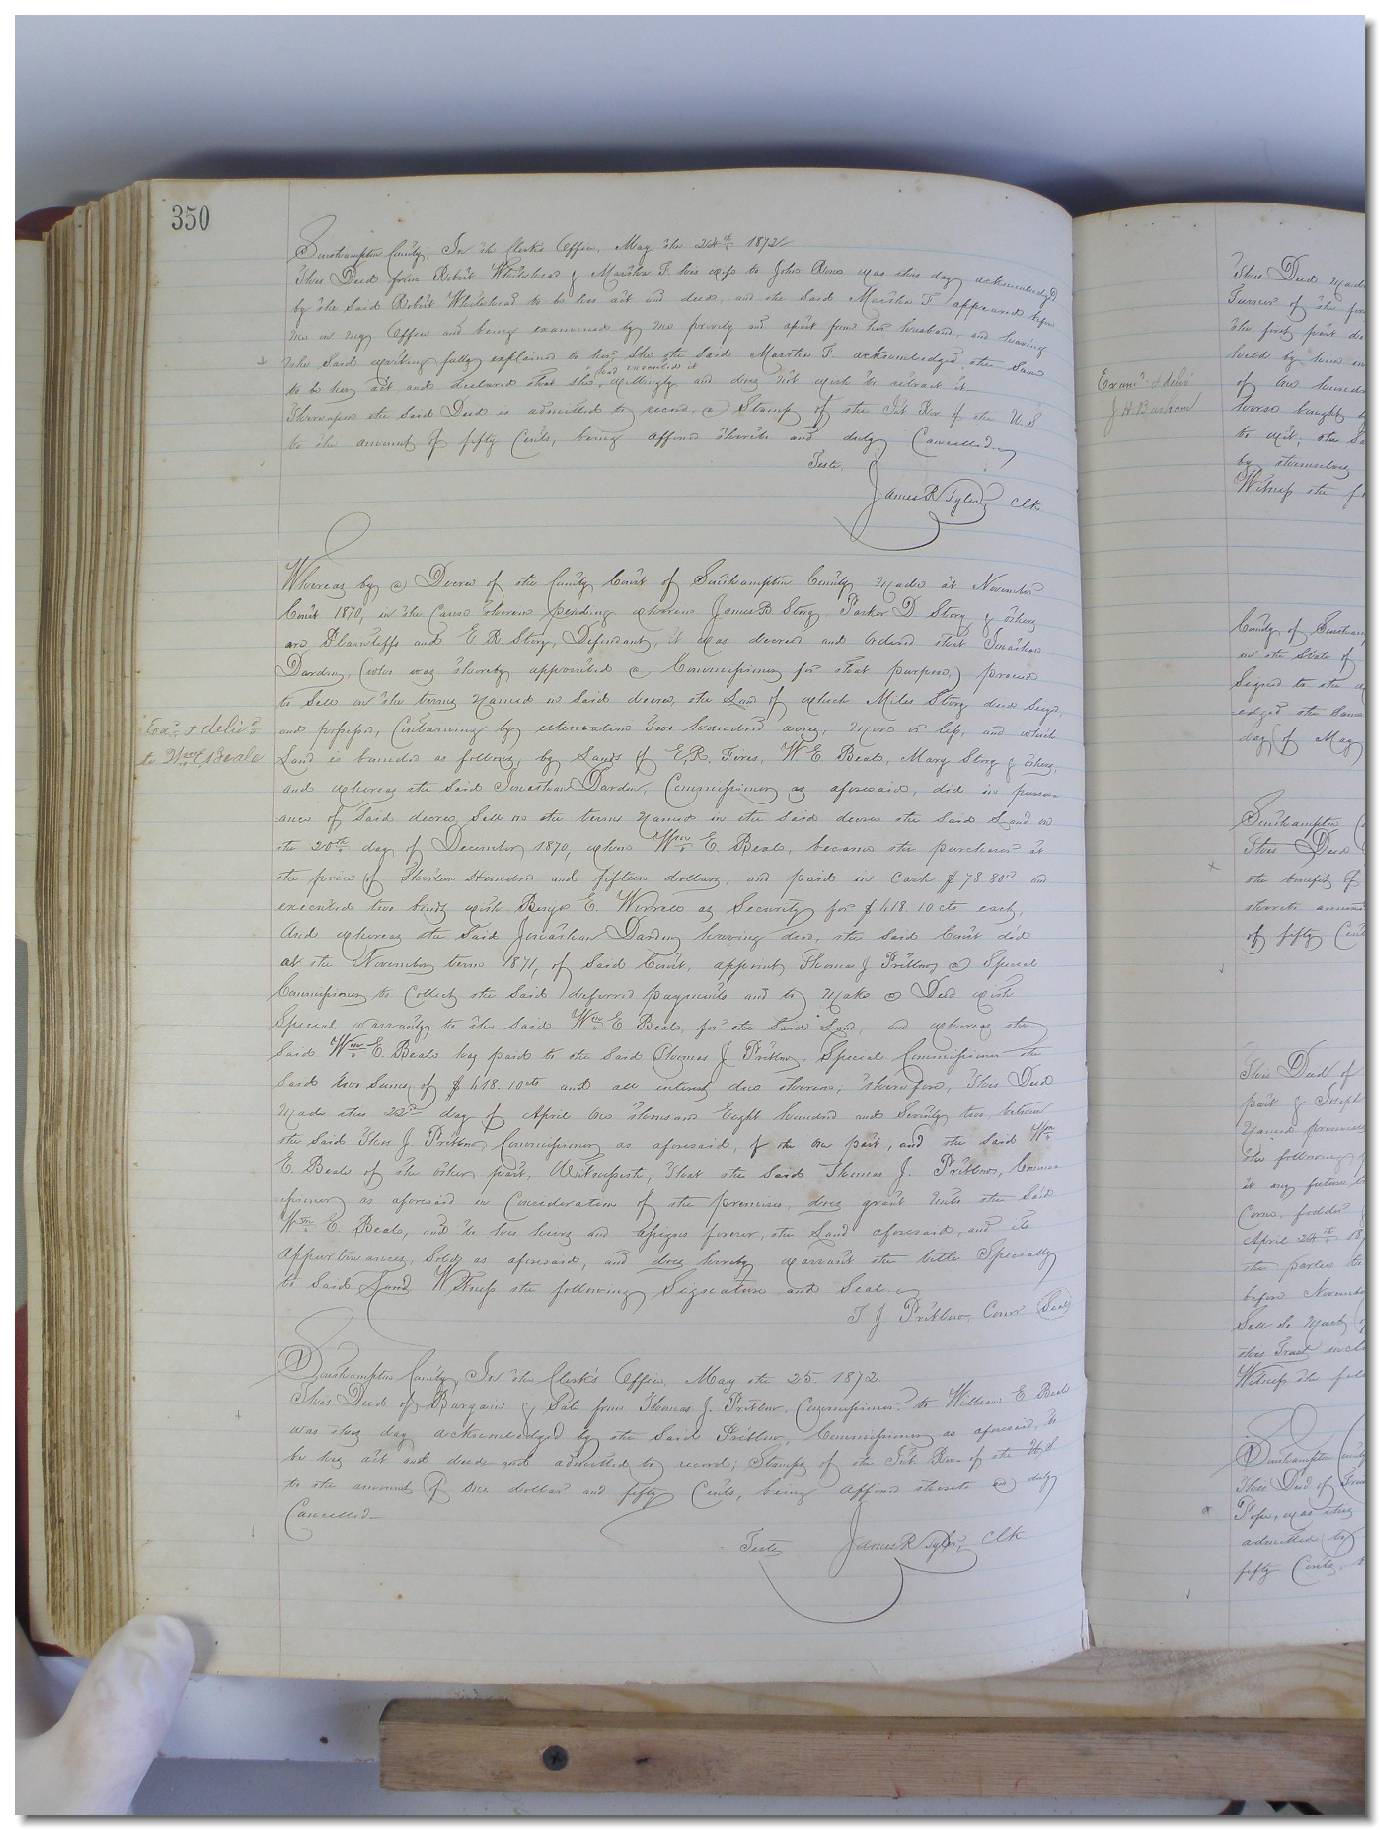 350
Southampton County, In the Clerk's Office, May the 24th 1872
This Deed from Robert Whitehead & Martha F. his wife to John was this day acknowledged
by the said Robert Whitehead to be his act and deed, and the said Martha F appeared before
me in my Office and being examined by me privily and apart from her husband, and having
the said writing fully explained to her, She the said Martha F. acknowledged the same
had executed it
to be her act and declared that she willingly and does not wish to retract it
Thereupon the said Deed is admitted to record, a Stamp of the Int Rev of the U.S
to the amount of fifty Cents, being affixed thereto and duly Cancelled.
Teste,
James R Tyler, Clk
Whereas by a Decree of the County Court of Southampton County made at November
Court 1870, in the Cause therein pending wherein James B Story, Parker D Story & others
are Plaintiffs and E. R. Story, Defendant, it was decreed and Ordered that Jonathan
Darden, (who was thereby appointed a Commissioner for that purpose,) proceed
to sell on the terms named in said decree, the Land of which Miles Story died seized,
and possessed, Containing by estimation two hundred acres, more or less, and which
Exd. & delivd.
to Wm E. Beale
Land is bounded as follows, by Lands of E.R. W. E. Beale, Mary Story & others,
and whereas the said Jonathan Darden, Commissioner as aforesaid, did in pursu-
ance of said decree, sell on the terms named in the said decree the said Land on
the 20th day of December 1870, when Wm E. Beale, became the purchaser at
the price of hundred and fifteen dollars, and paid in Cash $78.80 and
executed two bonds with E. Worrell as Security for $618.10 cts each,
And whereas the said Jonathan Darden having died, the said Court did
at the November term 1871, of said Court, appoint Thomas J Pretlow a Special
Commissioner to Collect the said deferred payments and to make a Deed with
Special warranty, to the said Wm E Beale, for the said Land, and whereas the
said Wm E. Beale has paid to the said Thomas J Pretlow, Special Commissioner the
said two sums of $618.10 cts and all interest due thereon; therefore, This Deed
made this 22nd day of April One thousand Eight hundred and Seventy two, between
the said Thos J. Pretlow, Commissioner as aforesaid, of the one part, and the said Wm
E. Beale of the other part, Witnesseth, That the said Thomas J. Pretlow, Commis-
sioner as aforesaid in Consideration of the premises, does grant unto the said
Wm E. Beale, and to his heirs and assigns forever, the Land aforesaid, and its
appurtenances, Sold as aforesaid, and does hereby warrant the title Specially
to said Land Witness the following Signature and Seal.
T J Pretlow, Comr (Seal)
Southampton County, In the Clerk's Office, May the 25, 1872
This Deed of Bargain & Sale from Thomas J. Pretlow, Commissioner to William E Beale
was this day acknowledged by the said Pretlow, Commissioner as aforesaid, to
be his act and deed and admitted to record; Stamps of the Int Rev of the U.S
to the amount of one dollar and fifty Cents, being affixed thereto and duly
Cancelled
Teste James R Tyler, Clk
This Deed made
of the
the first part
of
horse bought
to wit, the
by themselves
Witness the
County of
in the State of
Signed to the
day of May
Southampton
This Deed
the benefit of
of fifty
This Deed of
part & Joseph
the following
at any future
Corn, fodder
April 24th
the parties
before November
this Trust
Witness the
Southampton
This Deed of
Pope, was this
admitted to
fifty Cents,